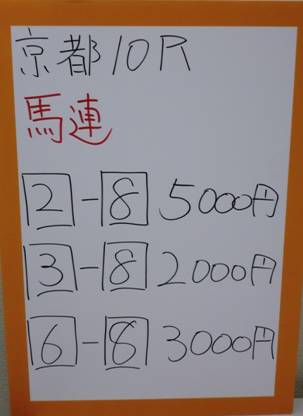 京都10R
馬連
2-8 5000円
3-8 2000円
6-8 3000円